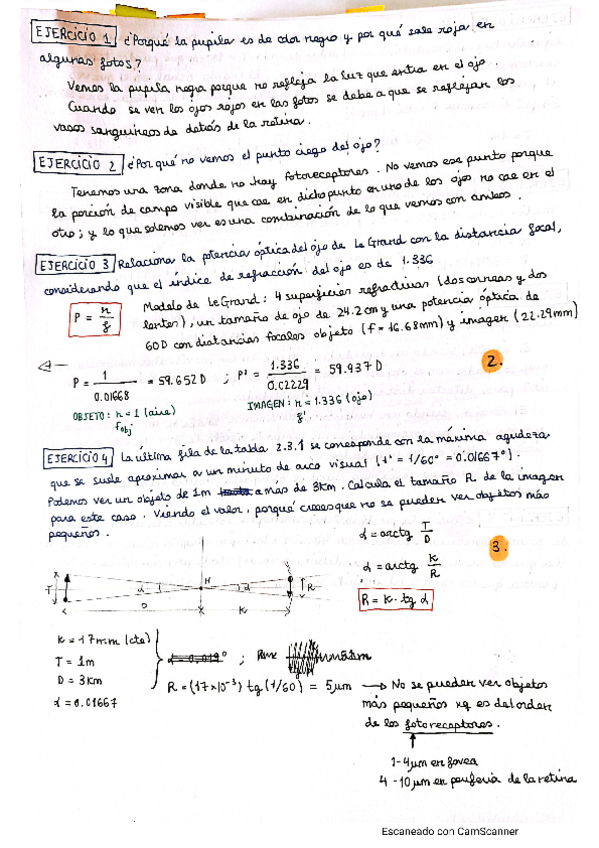 EJERCICIO 1 ¿Porqué la pupila es de color negro y por qué sale roja en
algunas fotos?
Vemos la pupila negra porque no refleja la luz que entra en el ojo.
Cuando se ven los ojos rojos en las fotos se debe a que se reflejan los
vasos sanguíneos de detrás de la retina.
EJERCICIO 2 ¿Por qué no vemos el punto ciego del ojo?
Tenemos una zona donde no hay fotoreceptores. No vemos ese punto porque
la porción de campo visible que cae en dicho punto en uno de los ojos no cae en el
otro; y lo que solemos ver es una combinación de lo que vemos con ambos.
EJERCICIO 3 Relaciona la potencia óptica del ojo de Le Grand con la distancia focal,
considerando que el índice de refracción del ojo es de 1.336
P = n/f
Modelo de Le Grand: 4 superficies refractivas (dos corneas y dos
lentes), un tamaño de ojo de 24.2cm y una potencia óptica de
60D con distancias focales objeto (f = 16.68mm) y imagen (22.29mm)
P = 1/0.01668 = 59.652 D ; P' = 1.336/0.02229 = 59.937 D
2.
OBJETO: n = 1 (aire)
f obj
IMAGEN: n = 1.336 (ojo)
f'
EJERCICIO 4 La última fila de la tabla 2.3.1 se corresponde con la máxima agudeza
que se suele aproximar a un minuto de arco visual (1' = 1/60° = 0.01667°).
Podemos ver un objeto de 1m a más de 3km. Calcula el tamaño R de la imagen
para este caso. Viendo el valor, porqué crees que no se pueden ver objetos más
pequeños.
α = arctg T/D
3.
α = arctg k/R
R = k · tg α
T α H α R
D k
k = 17mm (cte)
T = 1m
D = 3km
α = 0.01667
R = (17×10⁻³) tg (1/60) = 5μm → No se pueden ver objetos
más pequeños xq es del orden
de los fotoreceptores.
1-4μm en fóvea
4-10μm en periferia de la retina
Escaneado con CamScanner